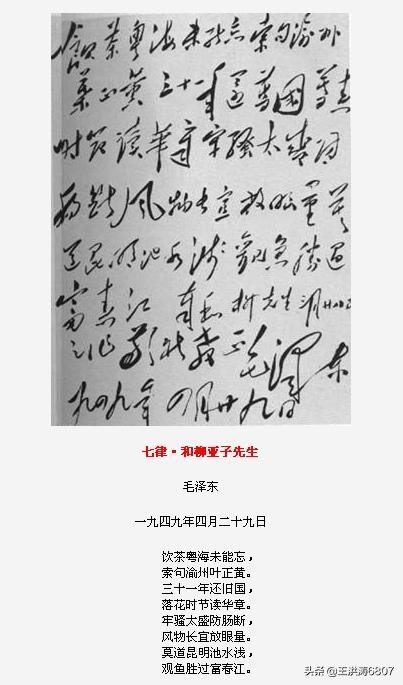 飲茶粤海未能忘索句渝州
葉正黄三十一年還舊國落花
时节读華章牢騷太盛防
腸斷風物长宜放眼量莫
道昆明池水浅觀魚勝過
富春江 奉和柳先生三月廿八日
之作敬祈教正 毛泽东
一九四九年四月廿九日
七律·和柳亚子先生
毛泽东
一九四九年四月二十九日
饮茶粤海未能忘，
索句渝州叶正黄。
三十一年还旧国，
落花时节读华章。
牢骚太盛防肠断，
风物长宜放眼量。
莫道昆明池水浅，
观鱼胜过富春江。
头条 @王洪涛6807